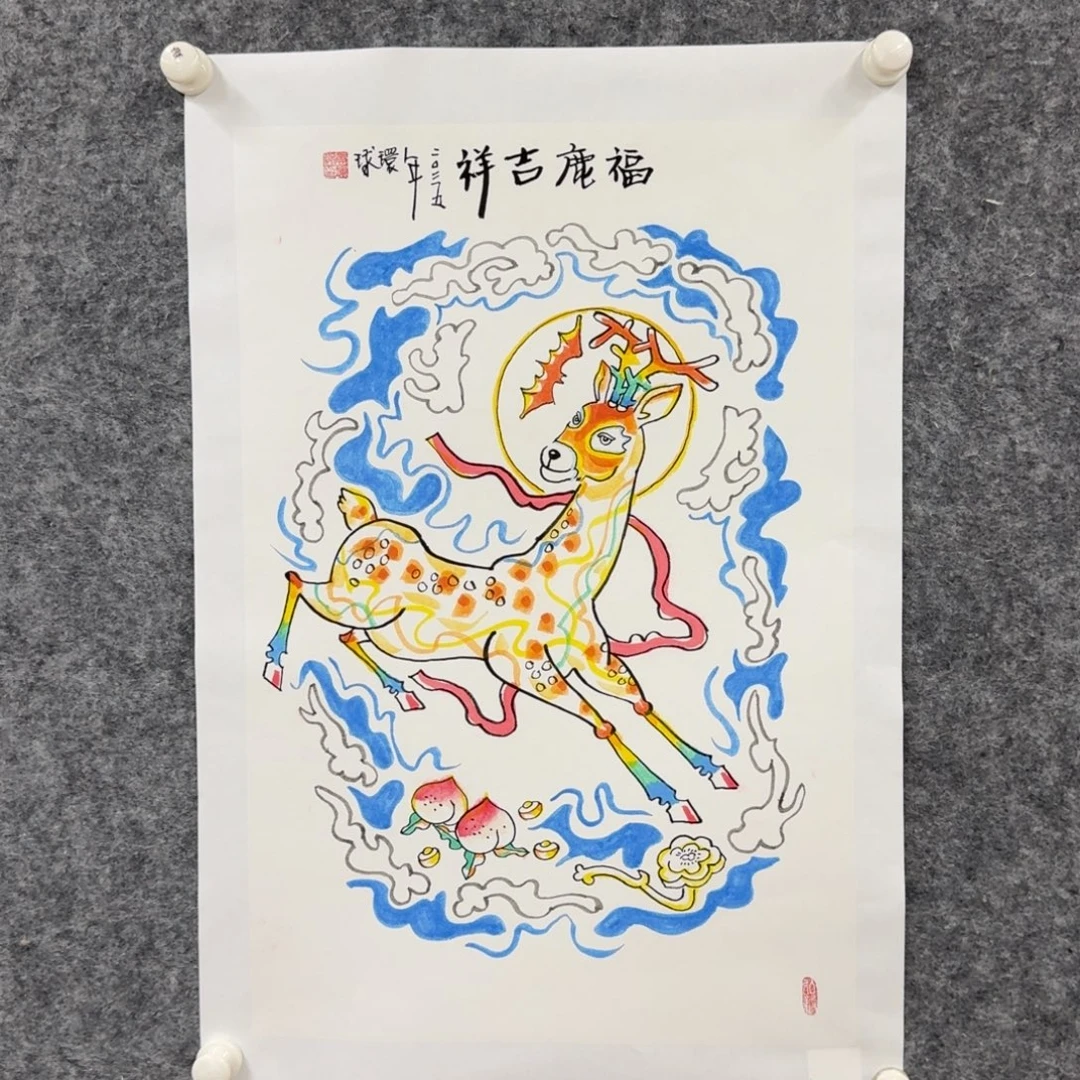 福鹿吉祥
二〇二五
年
環
球